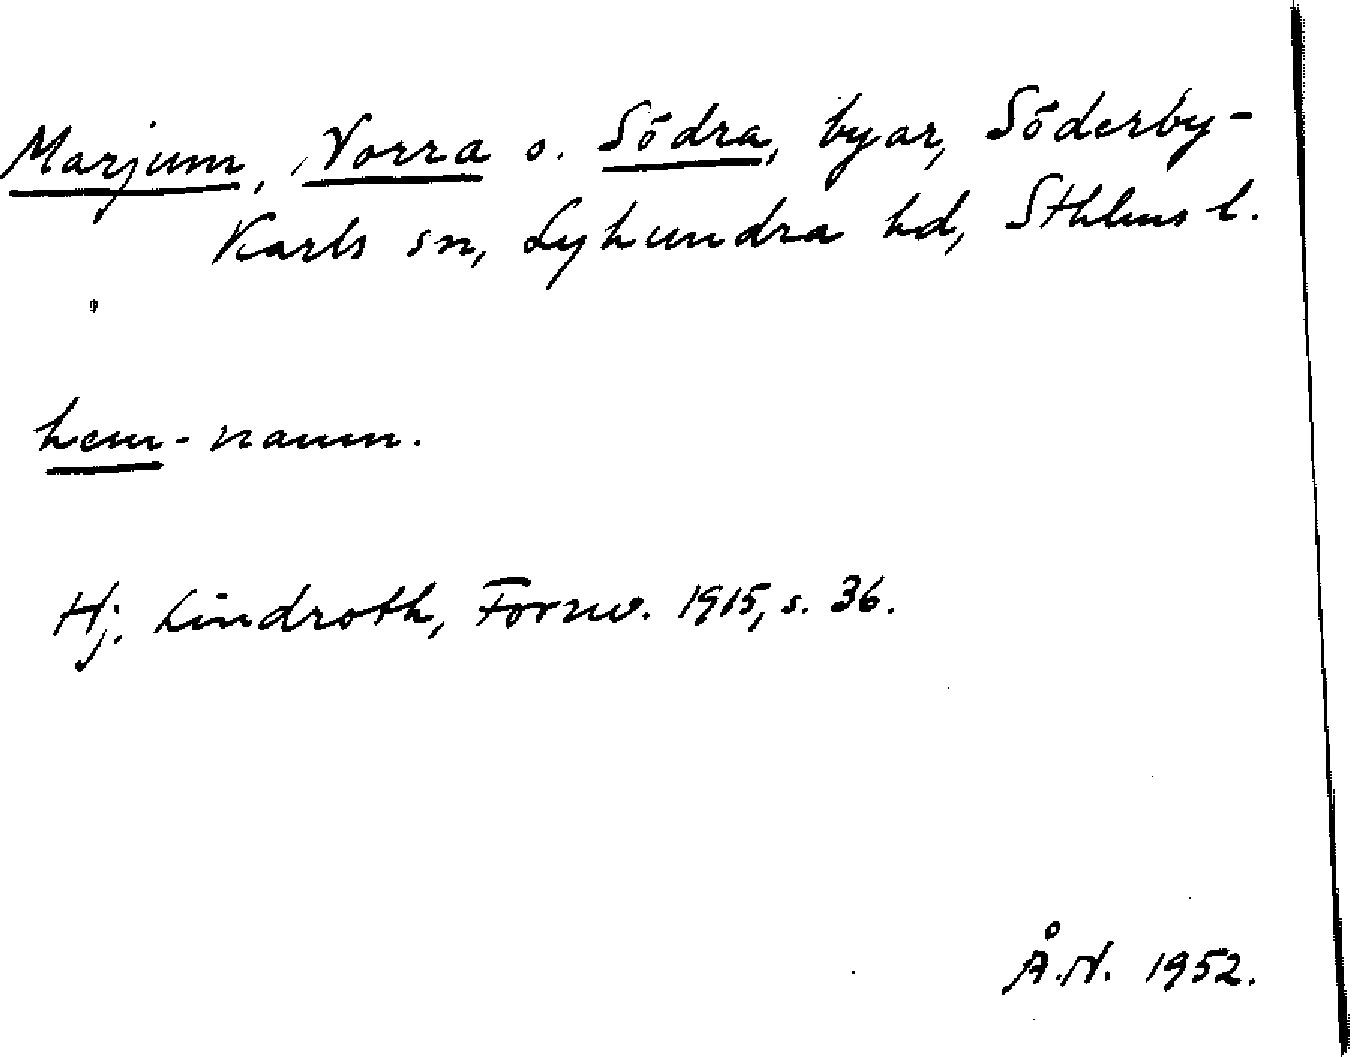 Marjum, Norra o. Södra, byar, Söderby-
Karls sn, Lyhundra hd, Sthlms l.
hem-namn.
Hj. Lindroth, Fornv. 1915, s. 36.
Å.N. 1952.